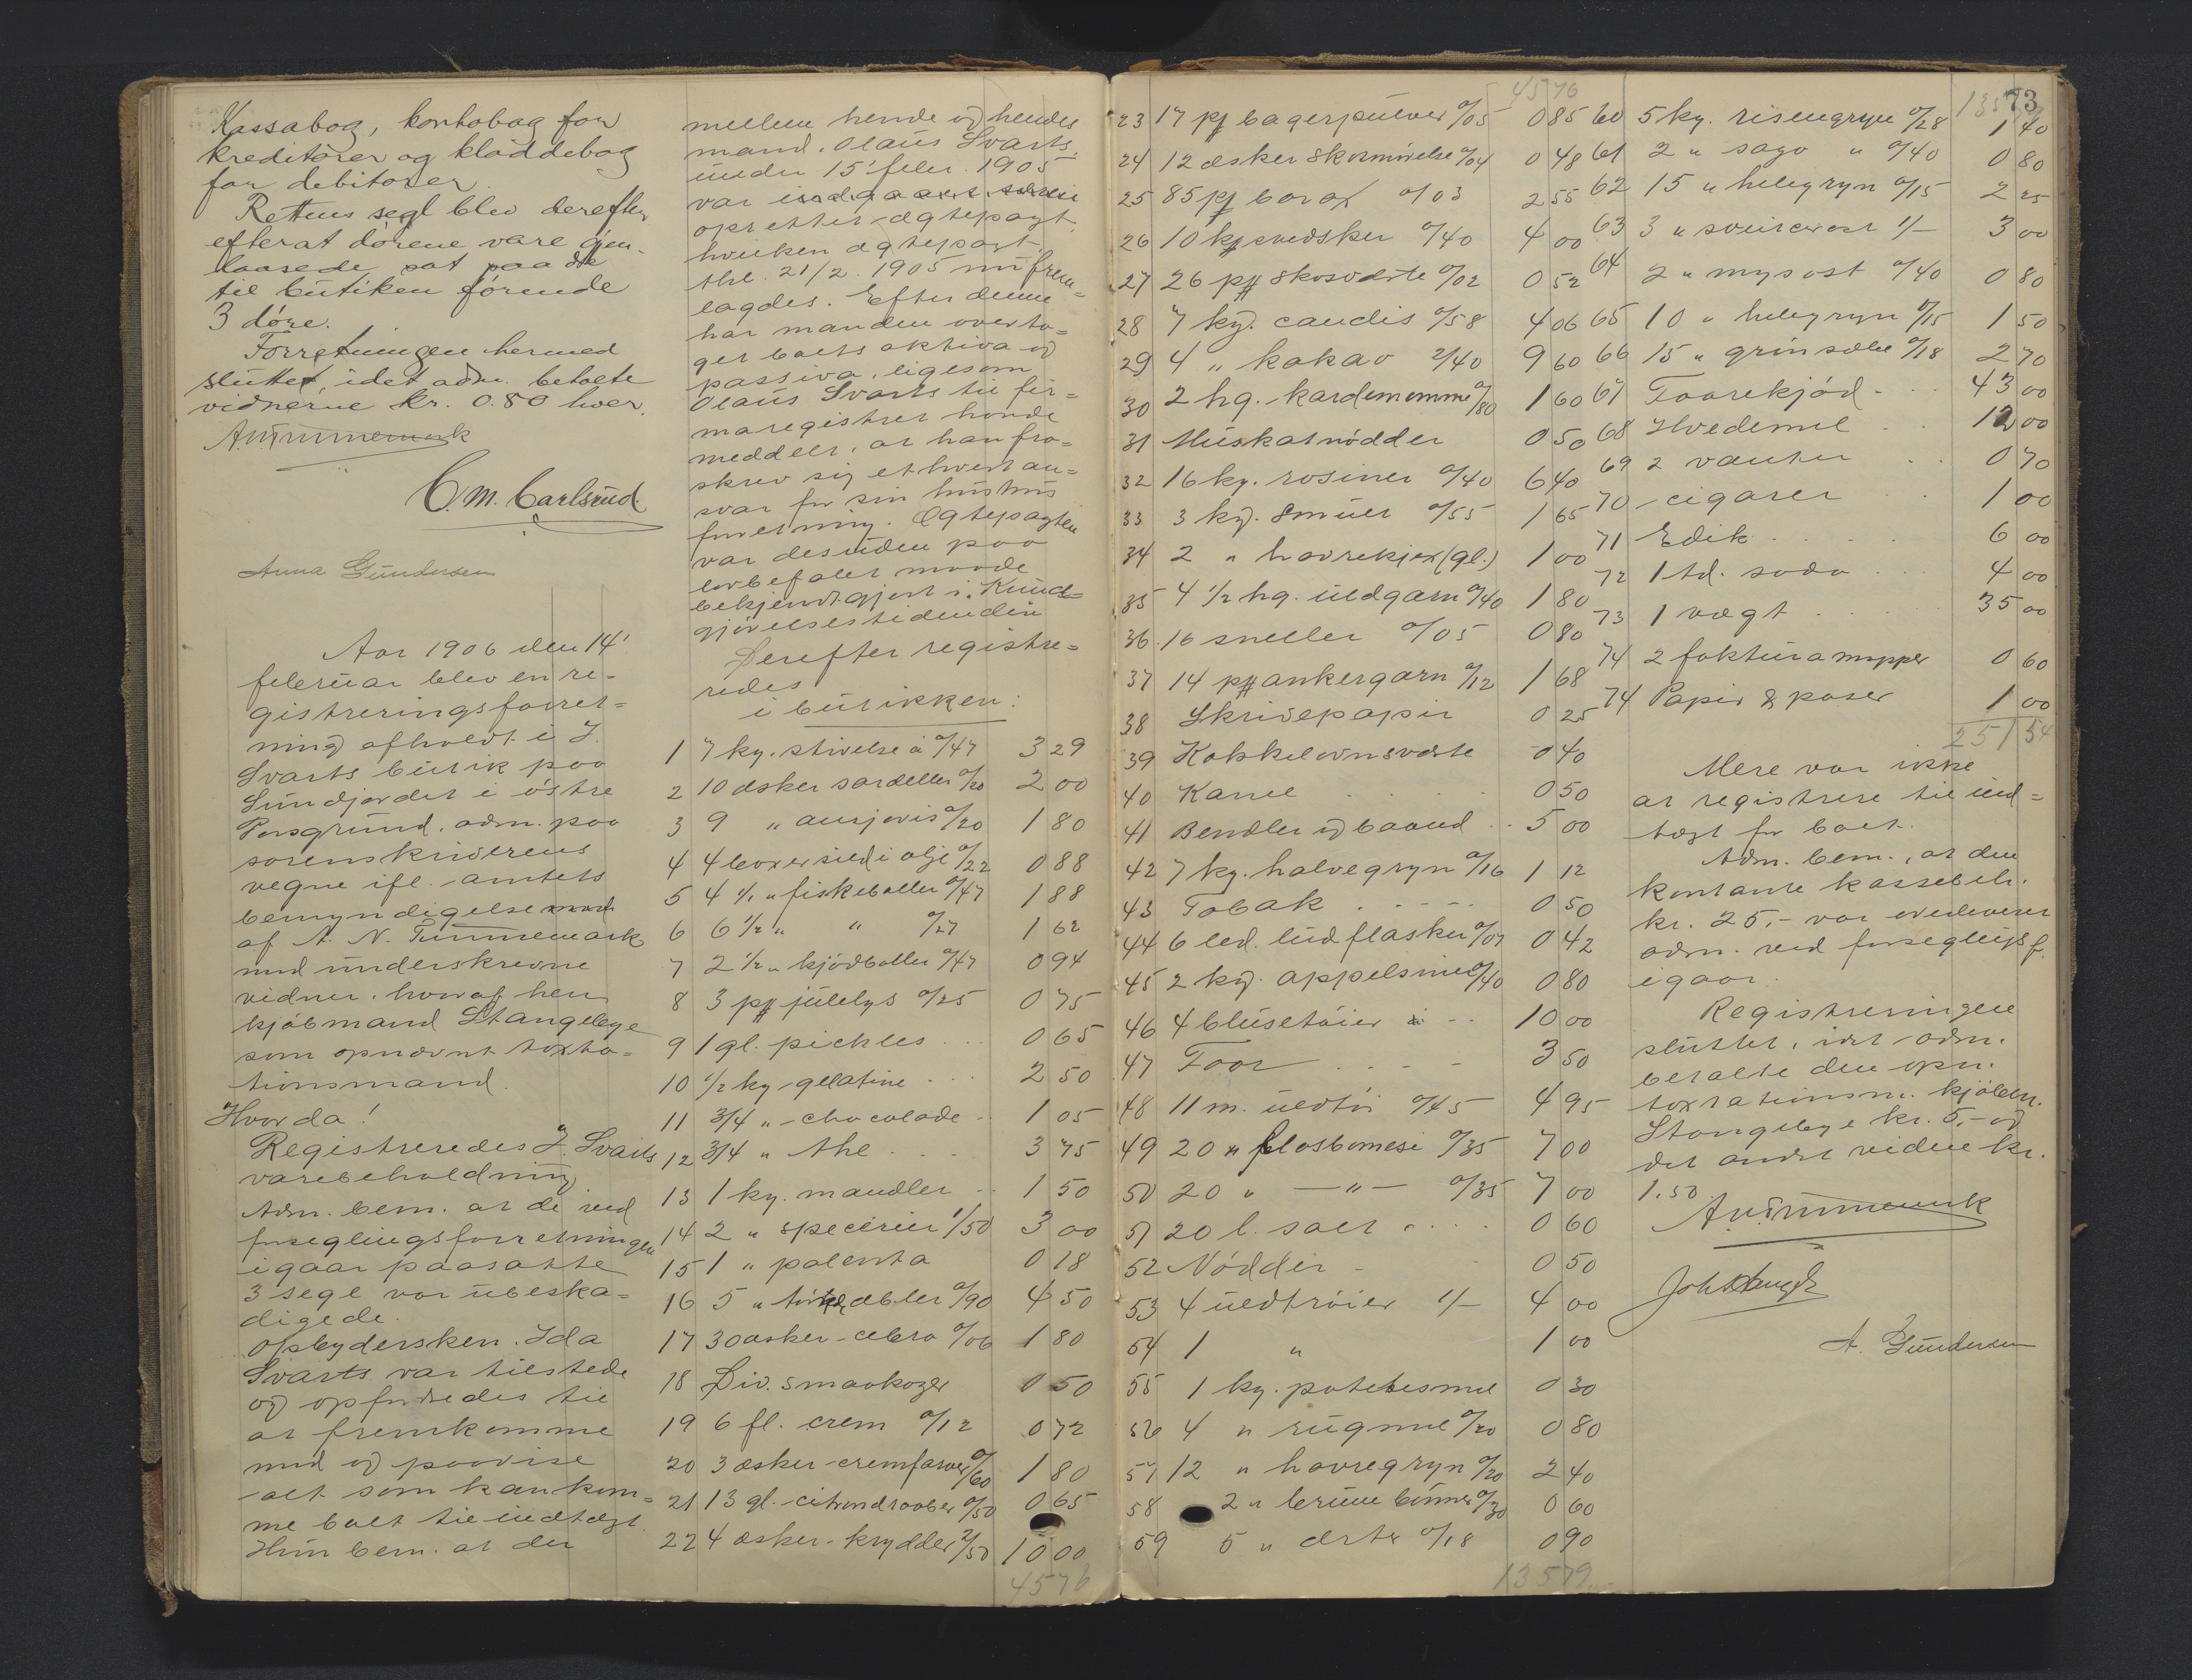 Kassabog, kontobog for
kreditorer og kladdebog
for debitorer.
Rettens segl blev derefter
efterat dørene vare gjen-
laasede sat paa de
til butiken førende
3 døre.
Forretningen hermed
sluttet, idet adm. betalte
vidnerne kr. 0.80 hver.
C. M. Carlsrud.
Anna Gundersen
Aar 1906 den 14'
februar blev en re-
gistreringsforret=
ning afholdt i I.
Svarts butik paa
Sundjordet i østre
Porsgrund. adm. paa
sorenskriverens
vegne ifl. amtets
bemyndigelse
af A. N. Tummemark
med underskrevne
vidner. hvoraf herr
kjøbmand Stangebye
som opnævnt taxta=
tionsmand.
Hvorda!
Registreredes I. Svarts
varebeholdning
Adm. bem. at de ved
forseglingsforretningen
igaar paasatte
3 segl var ubeska=
digede.
Opbydersken. Ida
Svarts var tilstede
og opfordredes til
at fremkomme
med og paavise
alt som kan kom=
me boet til indtægt.
Hun bem. at der
mellem hende og hendes
mand. Olaus Svarts
under 15' febr. 1905
var
oprettet ægtepagt.
hvilken ægtepagt.
thl. 21/2. 1905 nu frem=
lagdes. Efter denne
har manden overta=
get boets aktiva og
passiva, ligesom
Olaus Svarts til fir=
maregistret havde
meddelt, at han fra=
skrev sig ethvert an=
svar for sin hustrus
forretning. Ægtepagten
var desuden paa
lovbefalet maade
bekjendtgjort i. Kund=
gjørelsestidenden
Derefter registre=
redes
i butikken:
1 7 kg. stivelse à 0/47 3 29
2 10 æsker sardeller 0/20 2 00
3 9 " ansjovis 0/20 1 80
4 4 boxer sild i olje 0/22 0 88
5 4 1/1 " fiskeboller 0/47 1 88
6 6 1/2 " " 0/27 1 62
7 2 1/2 " kjødboller 0/47 0 94
8 3 pk julelys 0/25 0 75
9 1 gl. pickles ... 0 65
10 1/2 kg gelatine ... 2 50
11 3/4 " chocolade .. 1 05
12 3/4 " the .... 3 75
13 1 kg. mandler .. 1 50
14 2 " specerier 1/50 3 00
15 1 " polenta 0 18
16 5 " tørrede æbler 0/90 4 50
17 30 æsker cebra 0/06 1 80
18 Div. smaakager 0 50
19 6 fl. crem 0/12 0 72
20 3 æsker cremfarver 0/60 1 80
21 13 gl. citrondraaber 0/50 0 65
22 4 æsker krydder 2/50 10 00
45 76
45 76
23 17 pk bagerpulver 0/05 0 85
24 12 æsker skosmørelse 0/04 0 48
25 85 pk borax 0/03 2 55
26 10 kg svedsker 0/40 4 00
27 26 pk skosværte 0/02 0 52
28 7 kg. candis 0/58 4 06
29 4 " kakao 2/40 9 60
30 2 hg. kardemomme 0/80 1 60
31 Muskatnødder 0 50
32 16 kg. rosiner 0/40 6 40
33 3 kg. smult 0/55 1 65
34 2 " havrekjex (gl.) 1 00
35 4 1/2 hg. uldgarn 0/40 1 80
36 16 sneller 0/05 0 80
37 14 pk ankergarn 0/12 1 68
38 Skrivepapir 0 25
39 Kakkelovnsværte 0 40
40 Kanel .... 0 50
41 Bendler og baand .. 5 00
42 7 kg. halvegryn 0/16 1 12
43 Tobak ..... 0 50
44 6 led. ludflasker 0/07 0 42
45 2 kg. appelsiner 0/40 0 80
46 4 blusetøier .. 10 00
47 Toar .... 3 50
48 11 m. uldtøi 0/45 4 95
49 20 " flosbomesi 0/35 7 00
50 20 " —"— 0/35 7 00
51 20 l. salt .... 0 60
52 Nødder 0 50
53 4 uldtrøier 1/- 4 00
54 1 " 1 00
55 1 kg. potetesmel 0 30
56 4 " rugmel 0/20 0 80
57 12 " havregryn 0/20 2 40
58 2 " brune bønner 0/30 0 60
59 5 " ærter 0/18 0 90
135 79
73
60 5 kg. risengryn 0/28 1 40
61 2 " sago " 0/40 0 80
62 15 " helegryn 0/15 2 25
63 3 " sveiserost 1/- 3 00
64 2 " mysost 0/40 0 80
65 10 " helegryn 0/15 1 50
66 15 " grønsæbe 0/18 2 70
67 Faarekjød . . 43 00
68 Hvedemel . . 12 00
69 2 vanter . . 0 70
70 cigarer . . 1 00
71 Edik ..... 6 00
72 1 td. soda ... 4 00
73 1 vægt .... 35 00
74 2 fakturamapper 0 60
74 Papir & poser 1 00
251 54
Mere var ikke
at registrere til ind=
tægt for boet.
Adm. bem., at den
kontante kassebeh.
kr. 25,- var overleveret
adm. ved forseglingsf.
igaar.
Registreringen
sluttet, idet adm.
betalte den opn.
taxtationsm. kjøbm.
Stangebye kr. 5,- og
det andet vidne kr.
1.50.
A. Gundersen